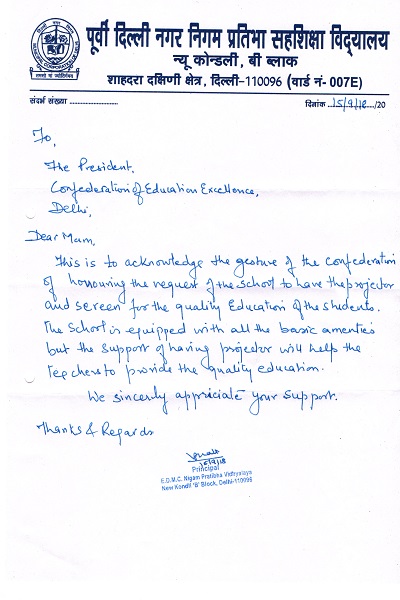 पूर्वी दिल्ली नगर निगम प्रतिभा सहशिक्षा विद्यालय
न्यू कोन्डली, बी ब्लाक
शाहदरा दक्षिणी क्षेत्र, दिल्ली-110096 (वार्ड नं- 007E)
संदर्भ संख्या ..................
दिनांक ..15/9/18...../20
To,
The President,
Confederation of Education Excellence,
Delhi,
Dear Mam,
This is to acknowledge the gesture of the Confederation
of honouring the request of the school to have the projector
and screen for the quality Education of the students.
The School is equipped with all the basic amenties
but the support of having projector will help the
teachers to provide the quality education.
We sincerly appriciate your support.
Thanks & Regards
15/9/18
Principal
E.D.M.C. Nigam Pratibha Vidhyalaya
New Kondli 'B' Block, Delhi-110096